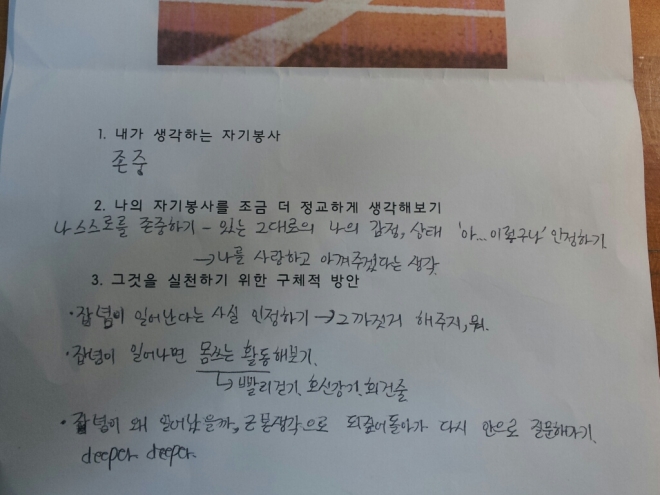 1. 내가 생각하는 자기봉사
존중
2. 나의 자기봉사를 조금 더 정교하게 생각해보기
나 스스로를 존중하기 - 있는 그대로의 나의 감정, 상태 '아... 이렇구나' 인정하기
→ 나를 사랑하고 아껴주겠다는 생각
3. 그것을 실천하기 위한 구체적 방안
· 잡념이 일어난다는 사실 인정하기 → 그까짓거 해주지, 뭐.
· 잡념이 일어나면 몸쓰는 활동해보기.
↳ 빨리걷기, 호신강기, 회건술
· 잡념이 왜 일어났을까, 근본생각으로 되짚어돌아가 다시 안으로 질문해가기.
deeper deeper